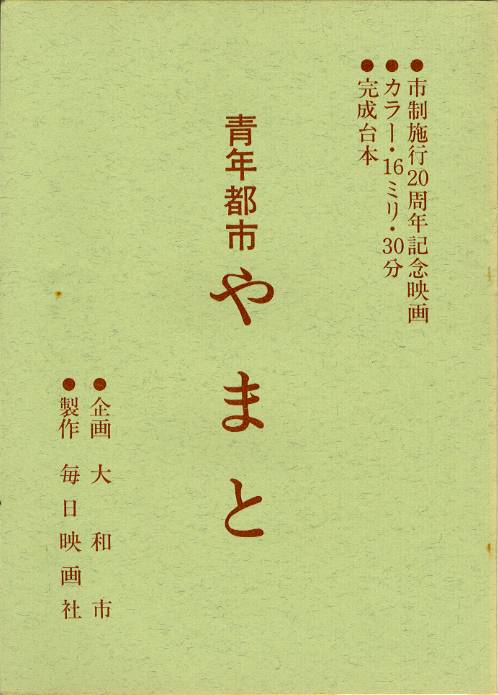 ●市制施行20周年記念映画
●カラー・16ミリ・30分
●完成台本
青年都市やまと
●企画 大和市
●製作 毎日映画社